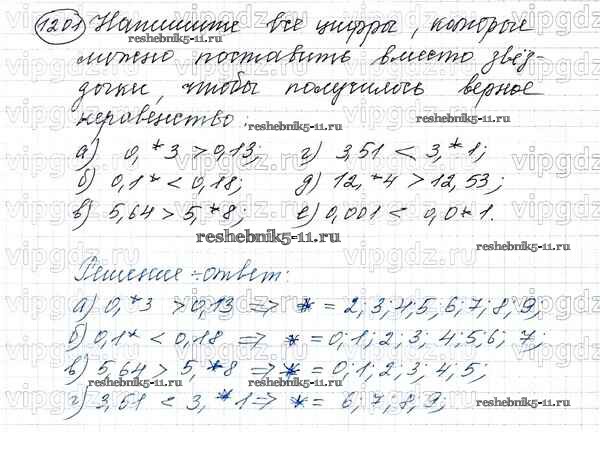 1201 Напишите все цифры, которые
reshebnik5-11.ru
можно поставить вместо звёз-
дочки, чтобы получилось верное
неравенство:
reshebnik5-11.ru
а) 0,*3 > 0,13; г) 3,51 < 3,*1;
б) 0,1* < 0,18; д) 12,*4 > 12,53;
в) 5,64 > 5,*8; е) 0,001 < 0,0*1.
reshebnik5-11.ru
Решение-ответ:
а) 0,*3 > 0,13 => * = 2; 3; 4; 5; 6; 7; 8; 9;
б) 0,1* < 0,18 => * = 0; 1; 2; 3; 4; 5; 6; 7;
в) 5,64 > 5,*8 => * = 0; 1; 2; 3; 4; 5;
reshebnik5-11.ru
г) 3,51 < 3,*1 => * = 6; 7; 8; 9;
reshebnik5-11.ru